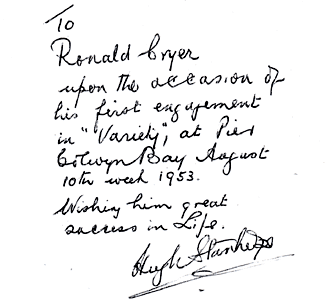 To
Ronald Cryer
upon the occasion of
his first engagement
in "Variety", at Pier
Colwyn Bay August
10th week 1953.
Wishing him great
success in Life.
Hugh